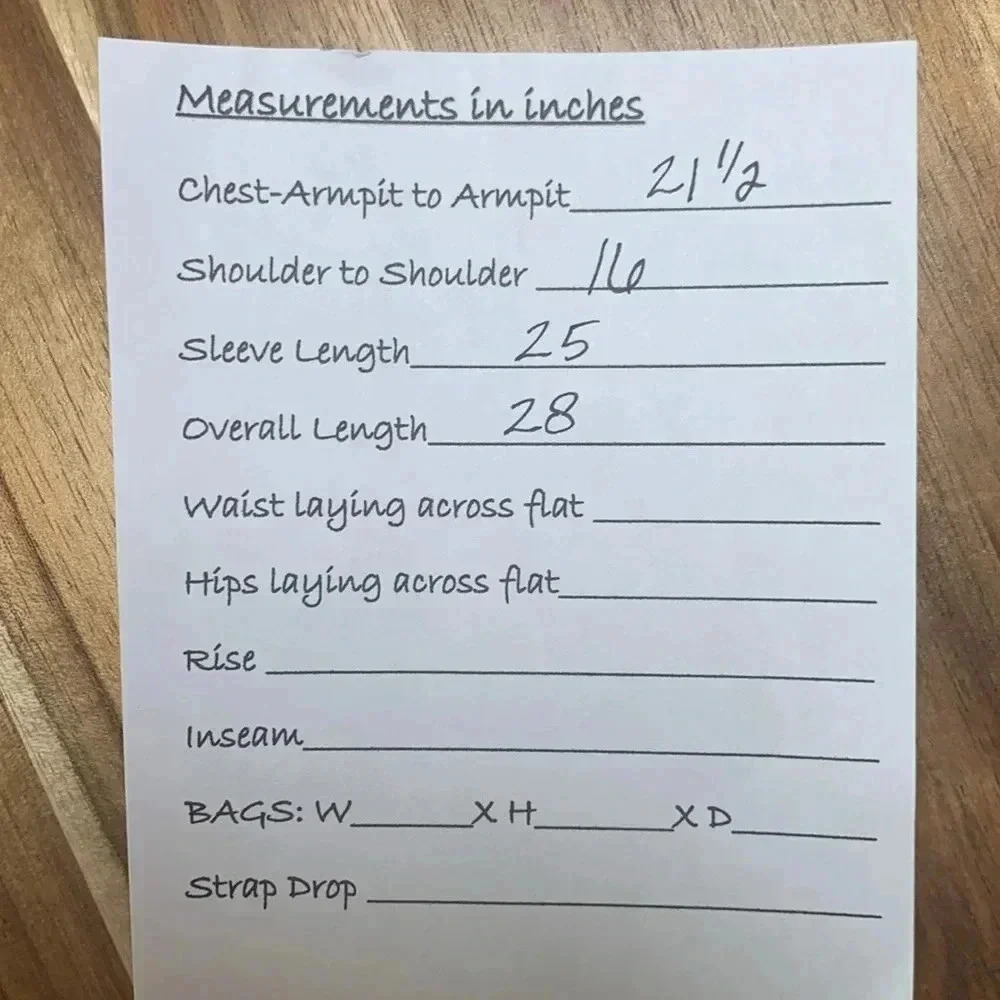 Measurements in inches
Chest-Armpit to Armpit 21 1/2
Shoulder to Shoulder 16
Sleeve Length 25
Overall Length 28
Waist laying across flat
Hips laying across flat
Rise
Inseam
BAGS: W______X H______X D______
Strap Drop